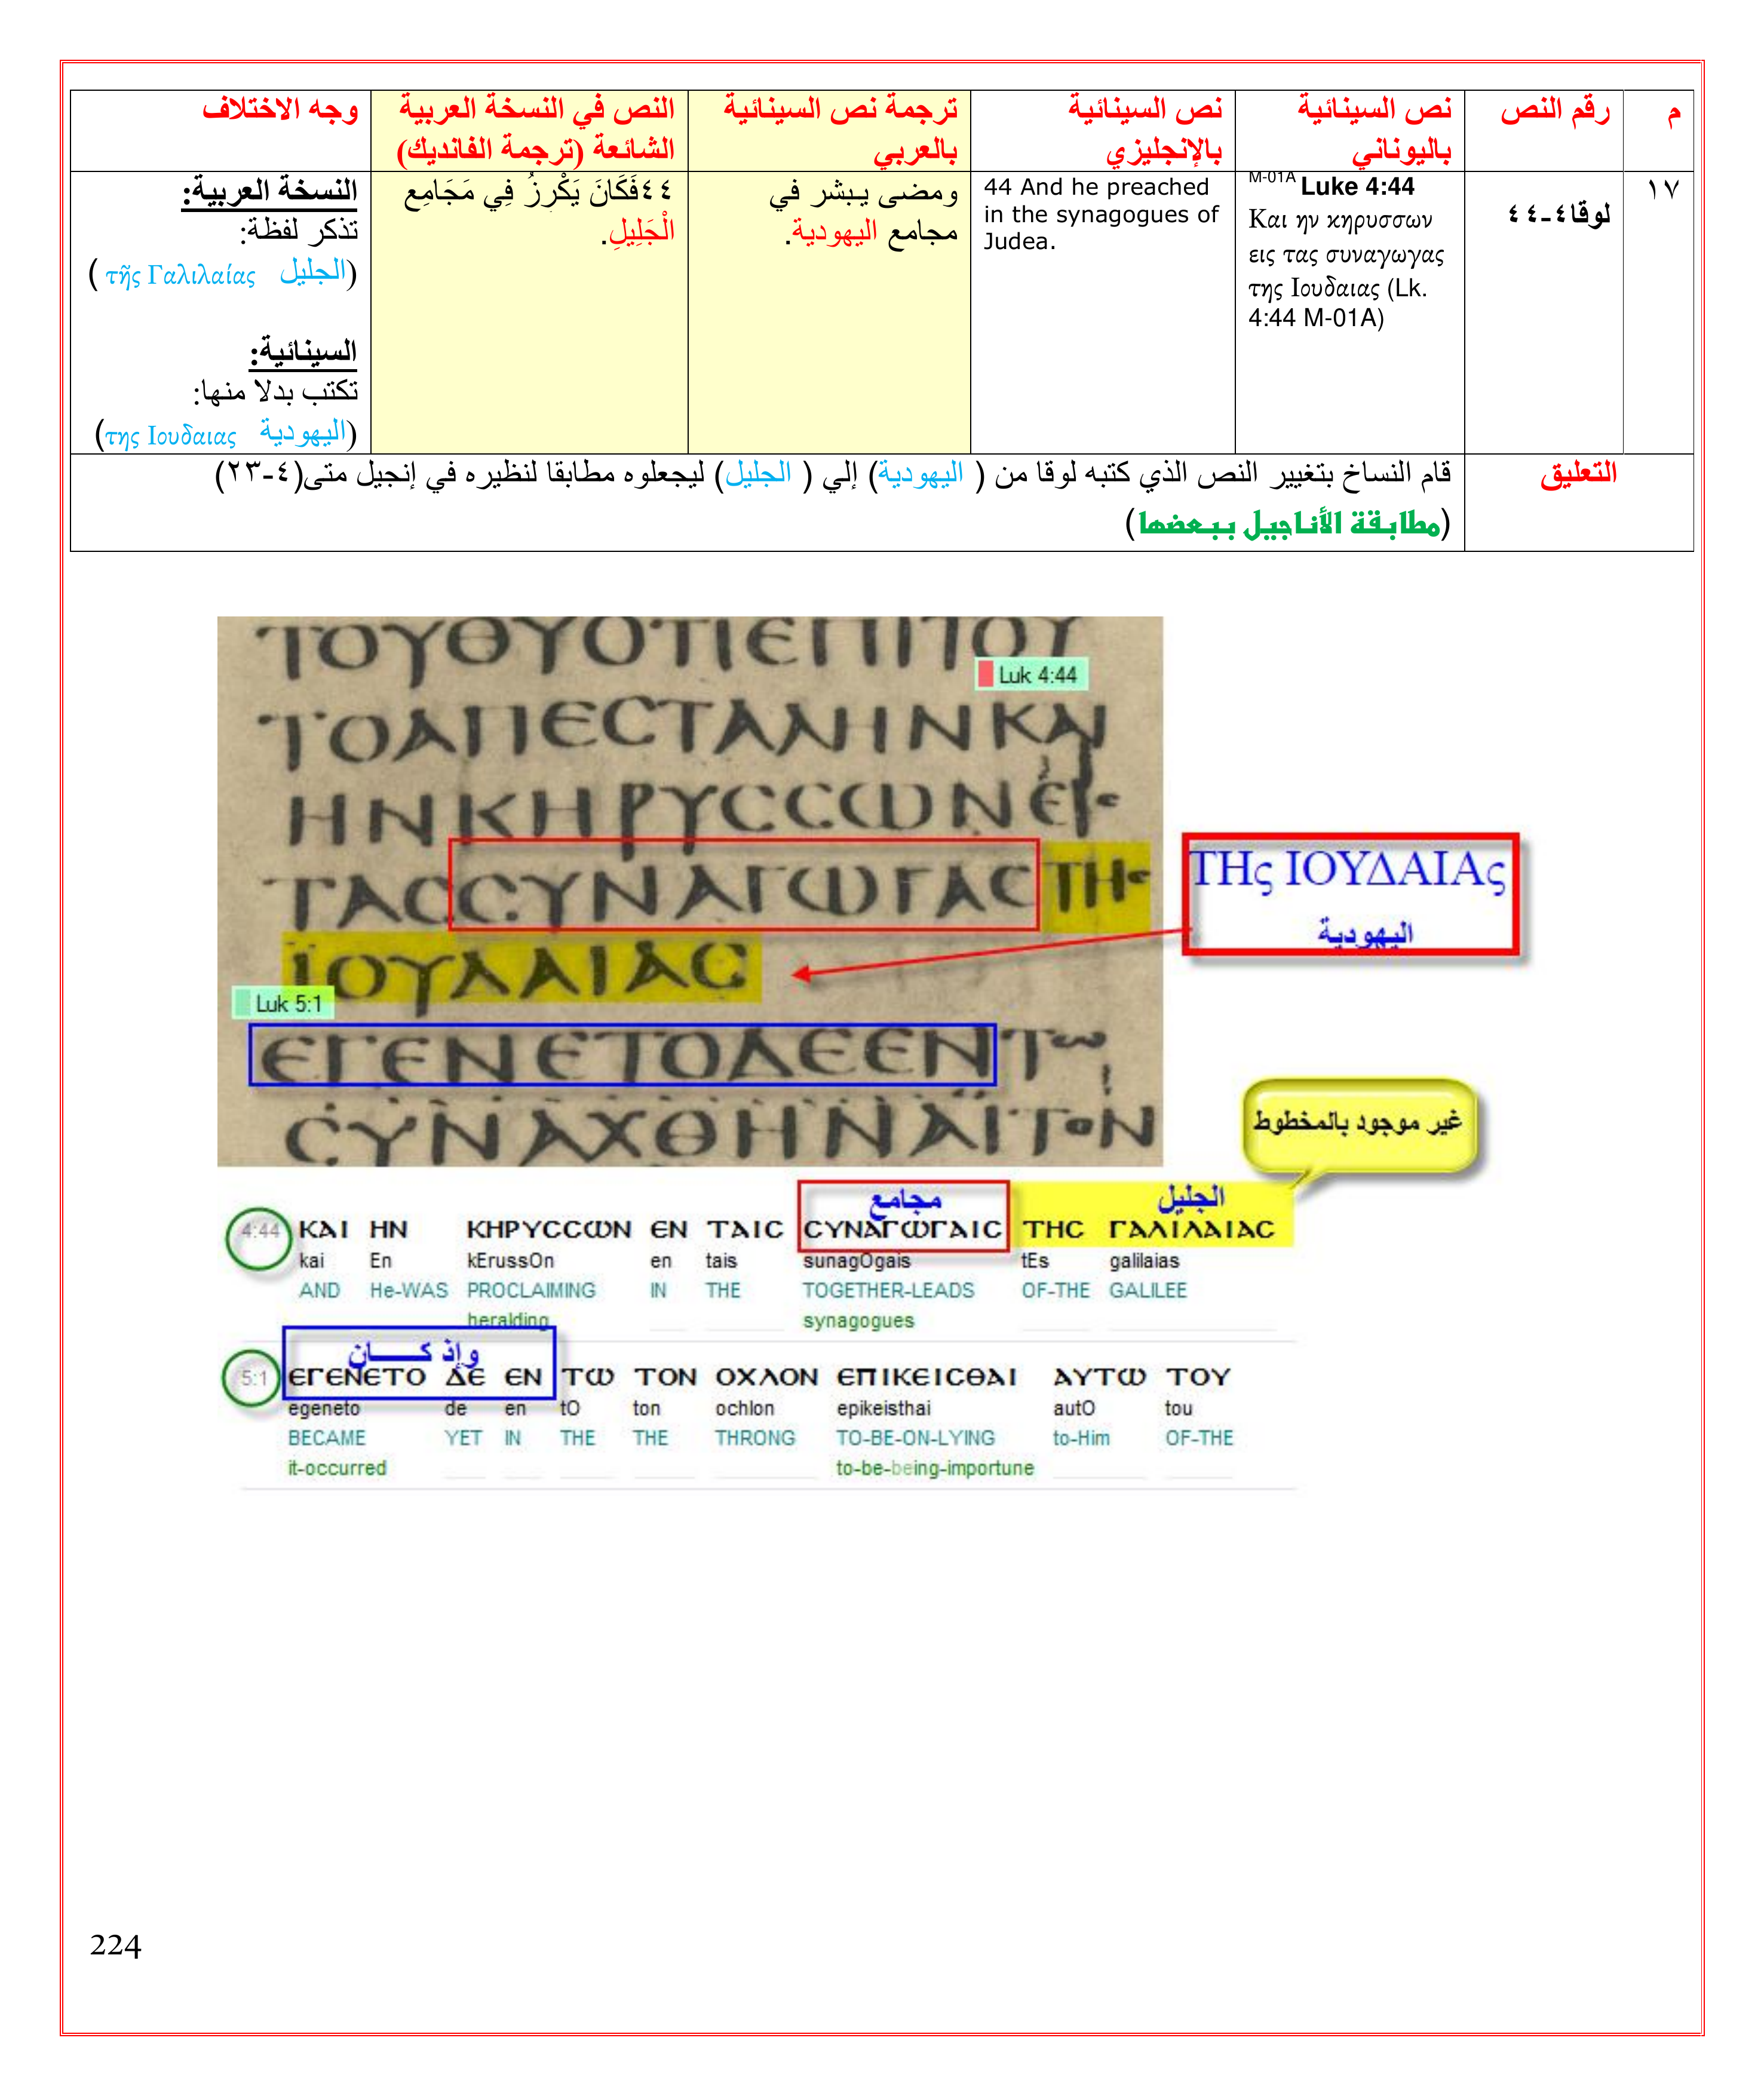 م
رقم النص
نص السينائية
باليوناني
نص السينائية
بالإنجليزي
ترجمة نص السينائية
بالعربي
النص في النسخة العربية
الشائعة (ترجمة الفانديك)
وجه الاختلاف
١٧
لوقا٤-٤٤
M-01A Luke 4:44
Και ην κηρυσσων
εις τας συναγωγας
της Ιουδαιας (Lk.
4:44 M-01A)
44 And he preached
in the synagogues of
Judea.
ومضى يبشر في
مجامع اليهودية.
٤٤فَكَانَ يَكْرِزُ فِي مَجَامِعِ
الْجَلِيلِ.
النسخة العربية:
تذكر لفظة:
(الجليل τῆς Γαλιλαίας )
السينائية:
تكتب بدلا منها:
(اليهودية της Ιουδαιας)
التعليق
قام النساخ بتغيير النص الذي كتبه لوقا من ( اليهودية) إلي ( الجليل) ليجعلوه مطابقا لنظيره في إنجيل متى(٤-٢٣)
(مطابقة الأناجيل ببعضها)
ΤΟΥΘΥΟΤΙΕΠΙΤΟΥ
Luk 4:44
ΤΟΑΠΕCΤΑΛΗΝΚΑΙ
ΗΝΚΗΡΥCCΩΝΕΙC
ΤΑCCΥΝΑΓΩΓΑCΤΗC
ΪΟΥΔΑΙΑC
ΤΗς ΙΟΥΔΑΙΑς
اليهودية
Luk 5:1
ΕΓΕΝΕΤΟΔΕΕΝΤω
CΥΝΑΧΘΗΝΑΙΤΟΝ
غير موجود بالمخطوط
مجامع
الجليل
4:44 ΚΑΙ ΗΝ ΚΗΡΥCCΩΝ ΕΝ ΤΑΙC CΥΝΑΓΩΓΑΙC ΤΗC ΓΑΛΙΛΑΙΑC
kai En kErussOn en tais sunagOgais tEs galilaias
AND He-WAS PROCLAIMING IN THE TOGETHER-LEADS OF-THE GALILEE
heralding synagogues
وإذ كــــان
5:1 ΕΓΕΝΕΤΟ ΔΕ ΕΝ ΤΩ ΤΟΝ ΟΧΛΟΝ ΕΠΙΚΕΙCΘΑΙ ΑΥΤΩ ΤΟΥ
egeneto de en tO ton ochlon epikeisthai autO tou
BECAME YET IN THE THE THRONG TO-BE-ON-LYING to-Him OF-THE
it-occurred to-be-being-importune
224